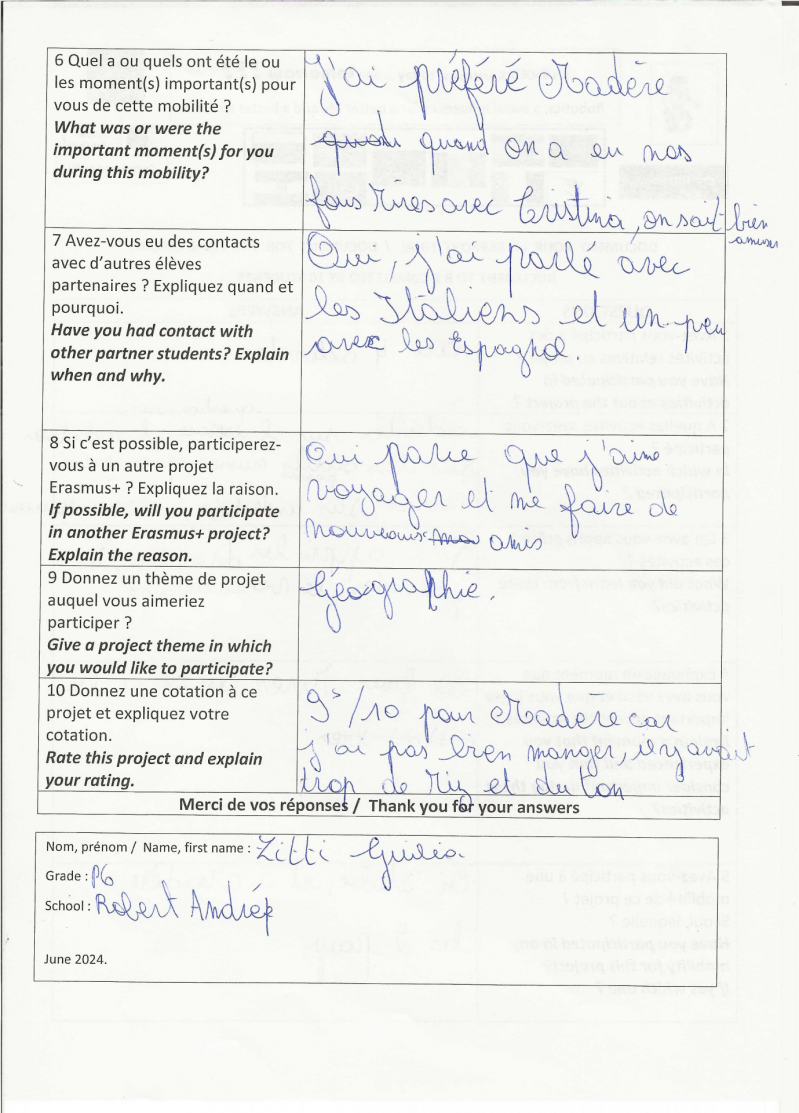 6 Quel a ou quels ont été le ou
les moment(s) important(s) pour
vous de cette mobilité ?
What was or were the
important moment(s) for you
during this mobility?
J'ai préféré Madère
quand on a eu nos
fous rires avec Cristina, on sait bien
amuser
7 Avez-vous eu des contacts
avec d'autres élèves
partenaires ? Expliquez quand et
pourquoi.
Have you had contact with
other partner students? Explain
when and why.
Oui, j'ai parlé avec
les Italiens et un peu
avec les Espagnol.
8 Si c'est possible, participerez-
vous à un autre projet
Erasmus+ ? Expliquez la raison.
If possible, will you participate
in another Erasmus+ project?
Explain the reason.
Oui parce que j'aime
voyager et me faire de
nouveaux amis
9 Donnez un thème de projet
auquel vous aimeriez
participer ?
Give a project theme in which
you would like to participate?
Géographie.
10 Donnez une cotation à ce
projet et expliquez votre
cotation.
Rate this project and explain
your rating.
9,5/10 pour Madère car
j'ai pas bien manger, il y avait
trop de riz et du ton
Merci de vos réponses / Thank you for your answers
Nom, prénom / Name, first name : Zitti Giulia
Grade : P6
School : Robert André
June 2024.